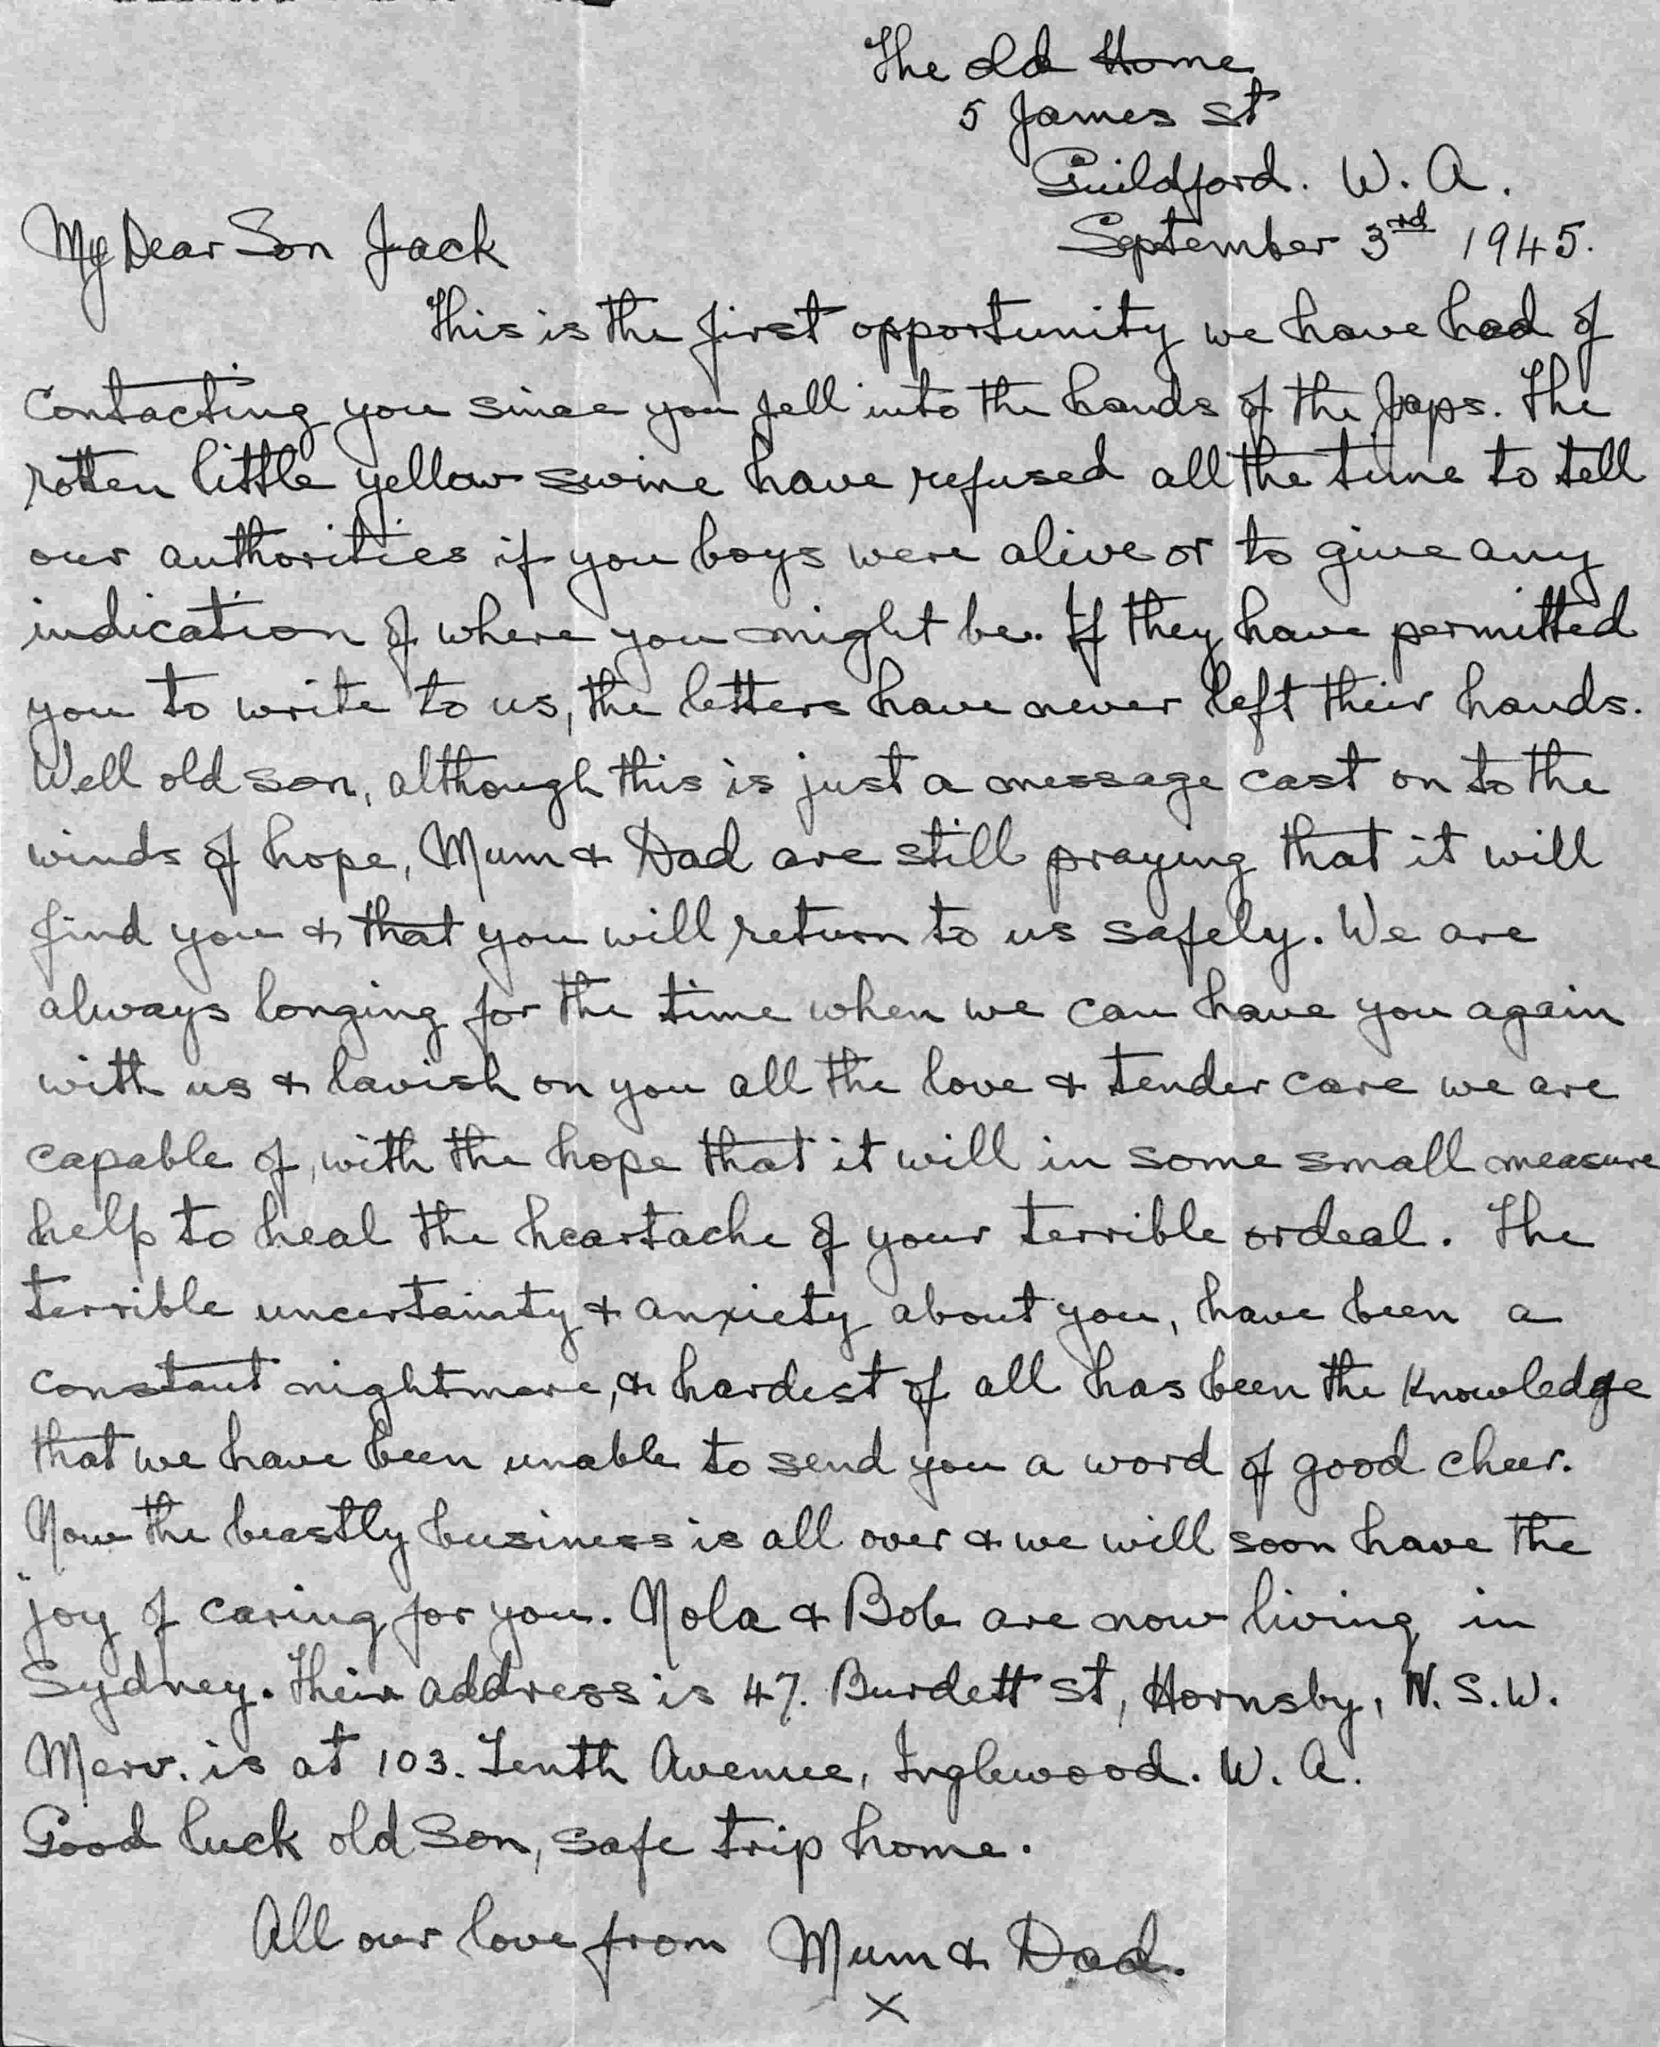 The old Home
5 James St
Guildford. W. A.
September 3rd 1945.
My Dear Son Jack
This is the first opportunity we have had of
contacting you since you fell into the hands of the Japs. The
rotten little yellow swine have refused all the time to tell
our authorities if you boys were alive or to give any
indication of where you might be. If they have permitted
you to write to us, the letters have never left their hands.
Well old son, although this is just a message cast on to the
winds of hope, Mum & Dad are still praying that it will
find you & that you will return to us safely. We are
always longing for the time when we can have you again
with us & lavish on you all the love & tender care we are
capable of, with the hope that it will in some small measure
help to heal the heartache of your terrible ordeal. The
terrible uncertainty & anxiety about you, have been a
constant nightmare, & hardest of all has been the knowledge
that we have been unable to send you a word of good cheer.
Now the beastly business is all over & we will soon have the
joy of caring for you. Nola & Bob are now living in
Sydney. Their address is 47. Burdett St, Hornsby, N. S. W.
Merv. is at 103. Tenth Avenue, Inglewood. W. A.
Good luck old Son, safe trip home.
All our love from Mum & Dad.
X